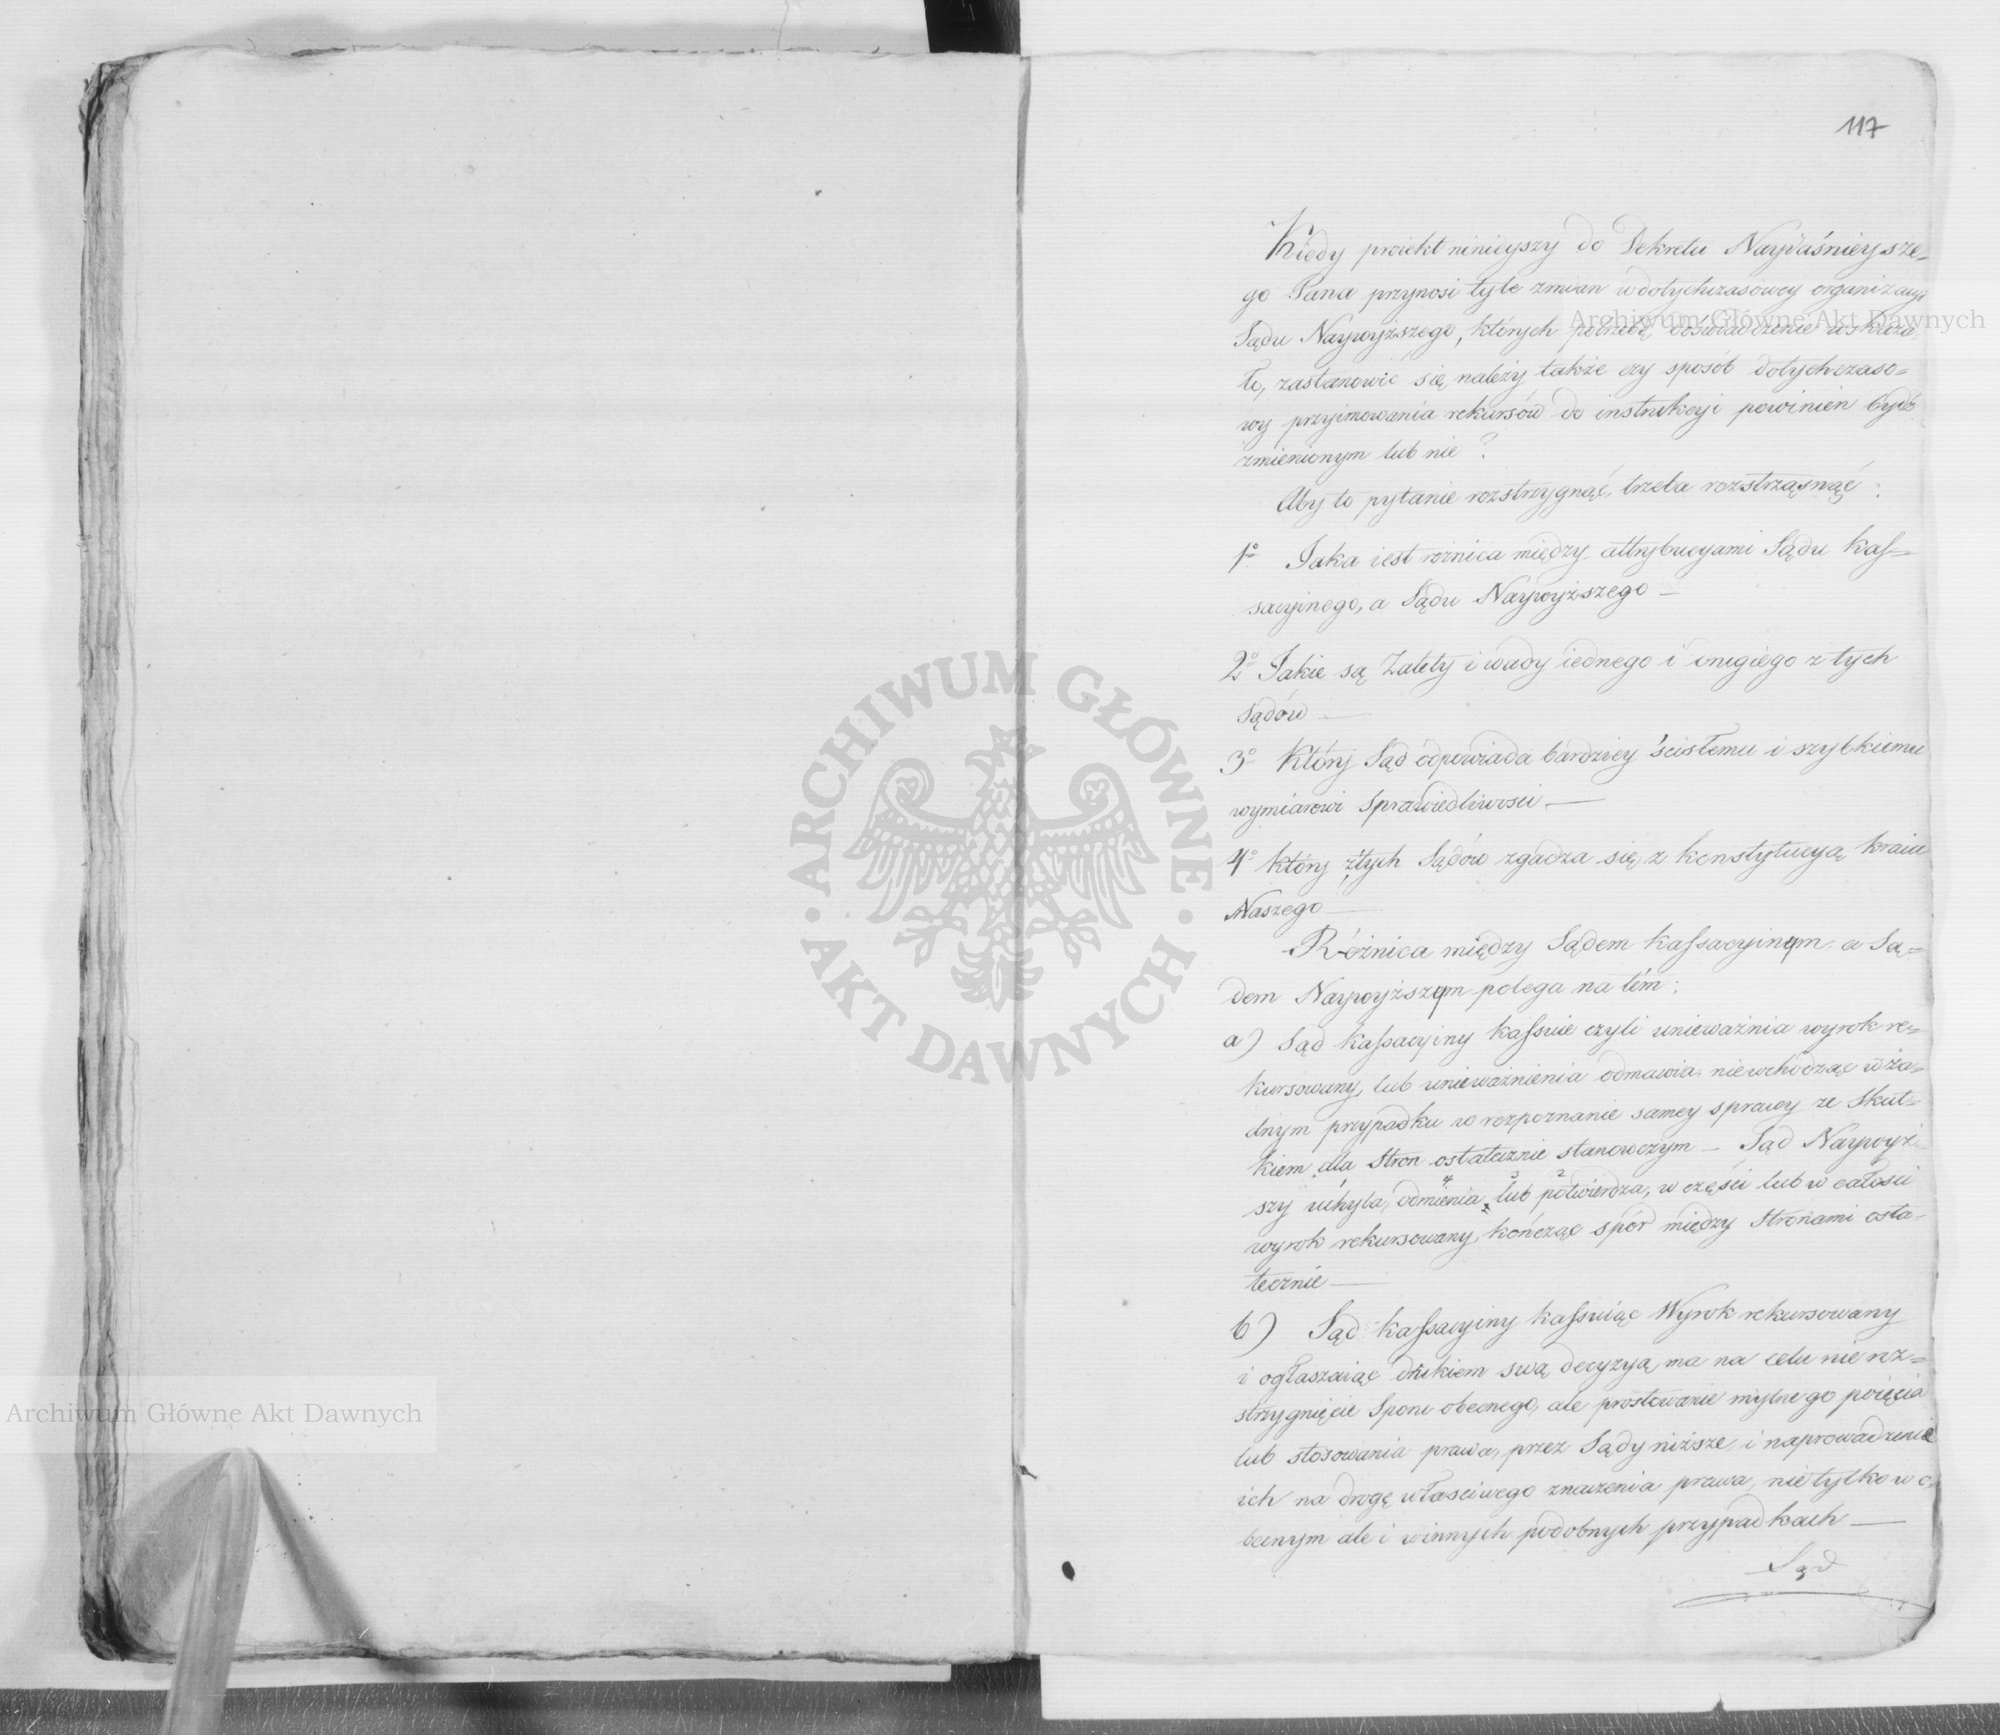 117
Kiedy proiekt ninieyszy do Dekretu Nayiaśnieysze-
go Pana przynosi tyle zmian w dotychczasowey organizacyi
Sądu Naywyższego, których potrzebę doświadczenie wskaza-
ło, zastanowić się należy także czy sposób dotychczaso-
wy przyimowania rekursów do instrukcyi powinien bydź
zmienionym lub nie?
Aby to pytanie rozstrzygnąć, trzeba roztrząsnąć:
1o Jaka iest roznica między attrybucyami Sądu Kas-
sacyinego, a Sądu Naywyższego —
2o Jakie są Zalety i wady iednego i drugiego z tych
Sądów —
3o Który Sąd odpowiada bardziey ścisłemu i szybkiemu
wymiarowi Sprawiedliwosci —
4o Który z tych Sądów zgadza się z konstytucyą kraiu
Naszego —
Różnica między Sądem Kassacyinym a Są-
dem Naywyższym polega na tém:
a) Sąd Kassacyiny kassuie czyli unieważnia wyrok re-
kursowany, lub unieważnienia odmawia, nie wchodząc w ża-
dnym przypadku w rozpoznanie samey sprawy ze Skut-
kiem dla Stron ostatecznie stanowczym — Sąd Naywyż-
szy uchyla, odmienia lub potwierdza, w części lub w całosci
4 3 2
wyrok rekursowany, kończąc spór między Stronami osta-
tecznie —
b) Sąd Kassacyiny kassuiąc Wyrok rekursowany
i ogłaszaiąc drukiem swą decyzyą, ma na celu nie roz-
strzygnięcie Sporu obecnego, ale prostowanie mylnego poięcia
lub stosowania prawa, przez Sądy niższe, i naprowadzenie
ich na drogę właściwego znaczenia prawa, nie tylko w o-
becnym ale i w innych podobnych przypadkach —
Sąd
Archiwum Główne Akt Dawnych
Archiwum Główne Akt Dawnych
ARCHIWUM GŁÓWNE
AKT DAWNYCH